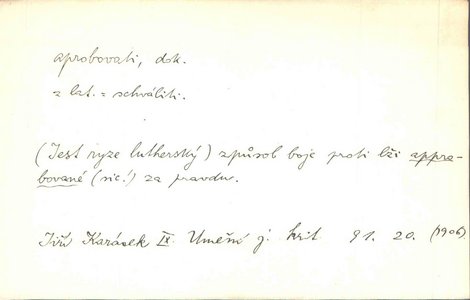 aprobovati, dok.
z lat. = schváliti.
(Jest ryze lutherský) způsob boje proti lži appro-
bované (sic!) za pravdu.
Jiří Karásek IX. Umění j. krit. 91. 20. (1906)